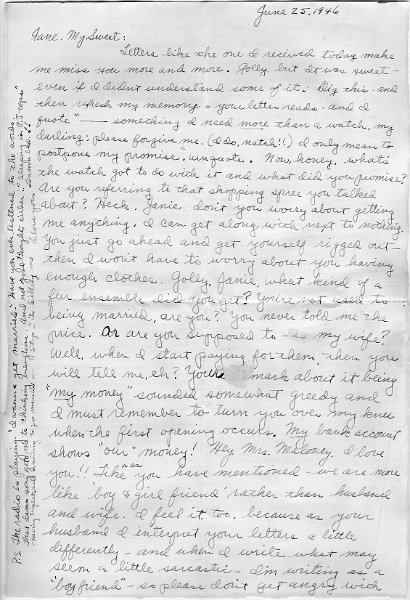 June 25, 1946
Jane, My Sweet:
Letters like the one I received today make
me miss you more and more. Golly, but it was sweet -
even if I didn't understand some of it. Dig this - and
then refresh my memory - your letter reads - and I
quote" — something I need more than a watch, my
darling: please forgive me. (I do, natch!!) I only mean to
postpone my promise. unquote. Now, honey, what's
the watch got to do with it and what did you promise?
Are you referring to that shopping spree you talked
about? Heck. Janie, don't you worry about getting
me anything. I can get along with next to nothing.
You just go ahead and get yourself rigged out -
then I won't have to worry about you having
enough clothes. Golly, Janie, what kind of a
fur ensemble did you get? You're not used to
being married, are you? You never told me the
price. Or are you supposed to - as my wife?
Well, when I start paying for them, then you
will tell me, eh? Your remark about it being
"my money" sounded somewhat greedy and
I must remember to turn you over my knee
when the first opening occurs. My bank account
shows "our" money! Hey Mrs. Maloney, I love
you!! Like you have mentioned - we are more
like "boy & girl friend" rather than husband
and wife. I feel it, too, because as your
husband I interpret your letters a little
differently - and when I write what may
seem a little sarcastic - I'm writing as a
"boy friend" - so please don't get angry with
P.S. The radio is playing "I wanna get married". Have you ever listened to the words